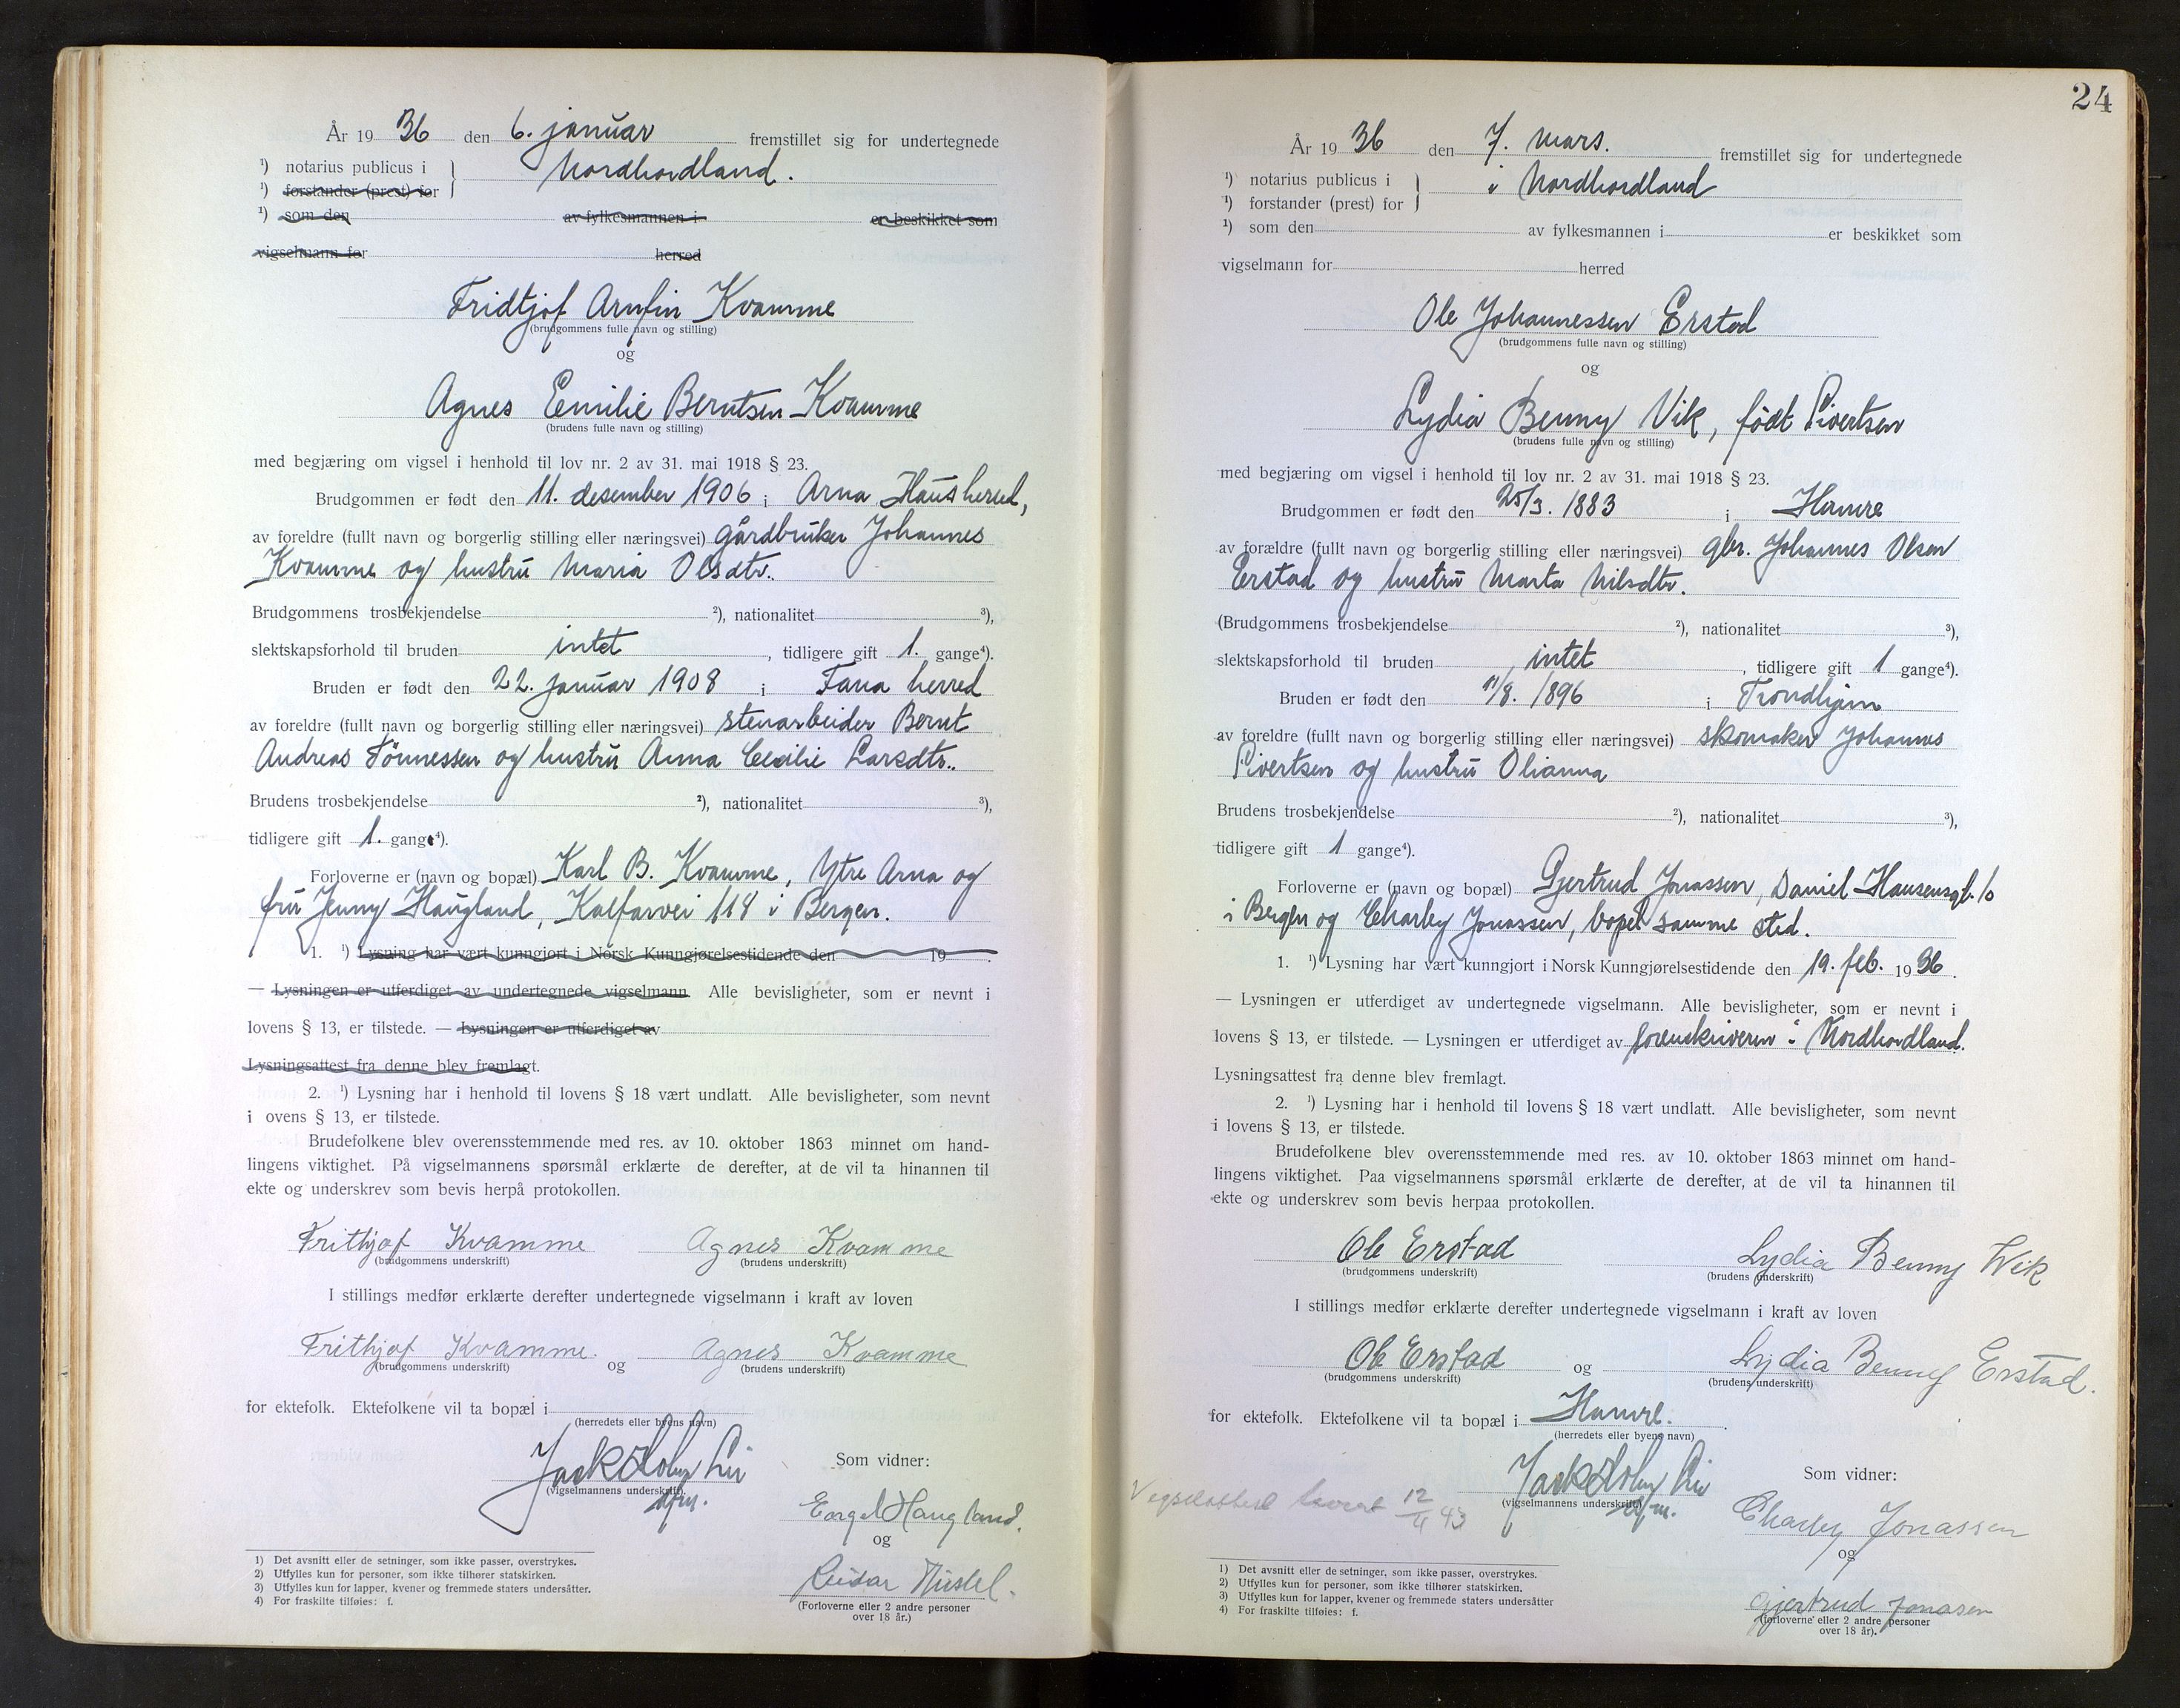 År 1936 den 6. januar fremstillet sig for undertegnede
¹) notarius publicus i } Nordhordland.
¹) forstander (prest) for
¹) som den av fylkesmannen i er beskikket som
vigselmann for herred
Fridtjof Arnfin Kvamme
(brudgommens fulle navn og stilling)
og
Agnes Emilie Berntsen Kvamme
(brudens fulle navn og stilling)
med begjæring om vigsel i henhold til lov nr. 2 av 31. mai 1918 § 23.
Brudgommen er født den 11. desember 1906 i Arna Haus herred,
av foreldre (fullt navn og borgerlig stilling eller næringsvei) gårdbruker Johannes
Kvamme og hustru Maria Olsdtr.
Brudgommens trosbekjendelse ²), nationalitet ³),
slektskapsforhold til bruden intet, tidligere gift 1. gange⁴).
Bruden er født den 22. januar 1908 i Fana herred
av foreldre (fullt navn og borgerlig stilling eller næringsvei) stenarbeider Bernt
Andreas Tönnessen og hustru Anna Cecilie Larsdtr..
Brudens trosbekjendelse ²), nationalitet ³),
tidligere gift 1. gange⁴).
Forloverne er (navn og bopæl) Karl B. Kvamme, Ytre Arna og
fru Jenny Haugland, Kalfarvei 118 i Bergen.
1. ¹) Lysning har vært kunngjort i Norsk Kunngjørelsestidende den 19 .
— Lysningen er utferdiget av undertegnede vigselmann. Alle bevisligheter, som er nevnt i
lovens § 13, er tilstede. — Lysningen er utferdiget av
Lysningsattest fra denne blev fremlagt.
2. ¹) Lysning har i henhold til lovens § 18 vært undlatt. Alle bevisligheter, som nevnt
i ovens § 13, er tilstede.
Brudefolkene blev overensstemmende med res. av 10. oktober 1863 minnet om hand-
lingens viktighet. På vigselmannens spørsmål erklærte de derefter, at de vil ta hinannen til
ekte og underskrev som bevis herpå protokollen.
Frithjof Kvamme Agnes Kvamme
(brudgommens underskrift) (brudens underskrift)
I stillings medfør erklærte derefter undertegnede vigselmann i kraft av loven
Frithjof Kvamme. og Agnes Kvamme
(brudgommens underskrift) (brudens underskrift)
for ektefolk. Ektefolkene vil ta bopæl i
(herredets eller byens navn)
Som vidner:
(vigselmannens underskrift)
Haugland.
og
Reidar
(Forloverne eller 2 andre personer
over 18 år.)
1) Det avsnitt eller de setninger, som ikke passer, overstrykes.
2) Utfylles kun for personer, som ikke tilhører statskirken.
3) Utfylles kun for lapper, kvener og fremmede staters undersåtter.
4) For fraskilte tilføies: f.
24
År 1936 den 7. mars. fremstillet sig for undertegnede
¹) notarius publicus i } i Nordhordland
¹) forstander (prest) for
¹) som den av fylkesmannen i er beskikket som
vigselmann for herred
Ole Johannessen Erstad
(brudgommens fulle navn og stilling)
og
Lydia Benny Vik, født Sivertsen
(brudens fulle navn og stilling)
med begjæring om vigsel i henhold til lov nr. 2 av 31. mai 1918 § 23.
Brudgommen er født den 25/3. 1883 i Hamre
av forældre (fullt navn og borgerlig stilling eller næringsvei) gbr. Johannes Olsen
Erstad og hustru Marta Nilsdtr.
(Brudgommens trosbekjendelse ²), nationalitet ³),
slektskapsforhold til bruden intet, tidligere gift 1 gange⁴).
Bruden er født den 11/8. 1896 i Trondhjem
av foreldre (fullt navn og borgerlig stilling eller næringsvei) skomaker Johannes
Sivertsen og hustru Olianna
Brudens trosbekjendelse ²), nationalitet ³),
tidligere gift 1 gange⁴).
Forloverne er (navn og bopæl) Gjertrud Jonassen, Daniel Hansensgt. 10
i Bergen og Charley Jonassen, bopel samme sted.
1. ¹) Lysning har vært kunngjort i Norsk Kunngjørelsestidende den 19. feb. 1936.
— Lysningen er utferdiget av undertegnede vigselmann. Alle bevisligheter, som er nevnt i
lovens § 13, er tilstede. — Lysningen er utferdiget av sorenskriveren i Nordhordland.
Lysningsattest fra denne blev fremlagt.
2. ¹) Lysning har i henhold til lovens § 18 vært undlatt. Alle bevisligheter, som nevnt
i lovens § 13, er tilstede.
Brudefolkene blev overensstemmende med res. av 10. oktober 1863 minnet om hand-
lingens viktighet. Paa vigselmannens spørsmål erklærte de derefter, at de vil ta hinannen til
ekte og underskrev som bevis herpaa protokollen.
Ole Erstad Lydia Benny Wik
(brudgommens underskrift) (brudens underskrift)
I stillings medfør erklærte derefter undertegnede vigselmann i kraft av loven
Ole Erstad og Lydia Benny Erstad.
(brudgommens underskrift) (brudens underskrift)
for ektefolk. Ektefolkene vil ta bopæl i Hamre.
(herredets eller byens navn)
Som vidner:
(vigselmannens underskrift)
Vigselattest levert 12/11 43
Charley Jonassen
og
Gjertrud Jonasen
(forloverne eller 2 andre personer
over 18 år).
1) Det avsnitt eller de setninger, som ikke passer, overstrykes.
2) Utfylles kun for personer, som ikke tilhører statskirken.
3) Utfylles kun for lapper, kvener og fremmede staters undersåtter
4) For fraskilte tilføies: f.